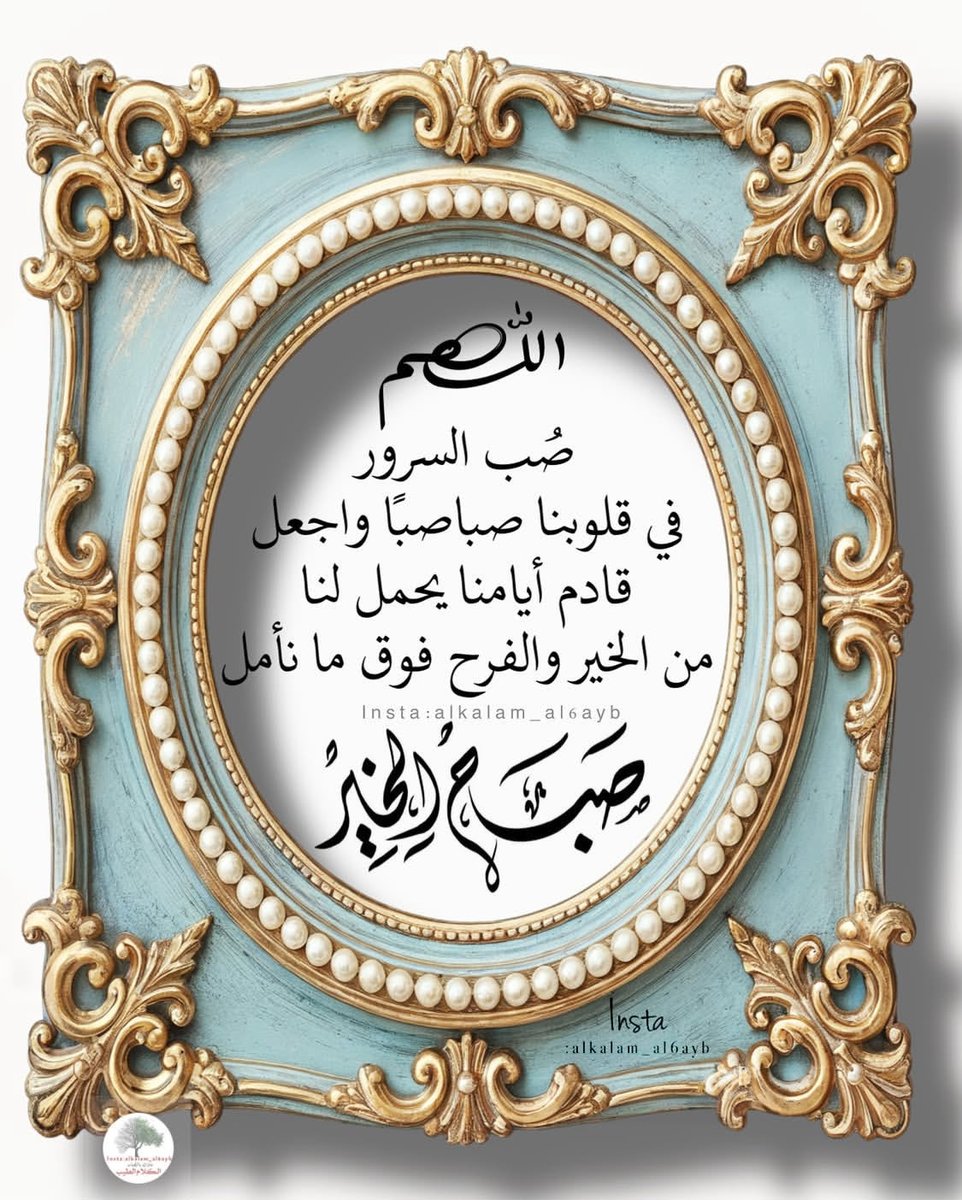 اللهم
صُب السرور
في قلوبنا صباصبًا واجعل
قادم أيامنا يحمل لنا
من الخير والفرح فوق ما نأمل
Insta:alkalam_al6ayb
صَبَاحُ الخِيرُ
Insta
:alkalam_al6ayb
Insta:alkalam_al6ayb
الكلام الطيب